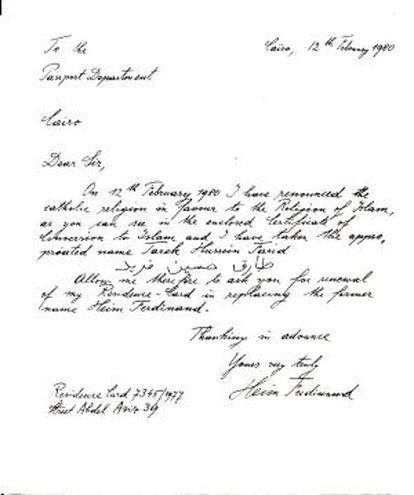 To the
Cairo, 12th February 1980
Passport Departement
Cairo
Dear Sir,
On 12th February 1980 I have renounced the
catholic religion in favour to the Religion of Islam,
as you can see in the enclosed Certificate of
Conversion to Islam and I have taken the appro,
priated name Tarek Hussein Farid
طارق حسين فريد
Allow me therefore to ask you for renewal
of my Residence-Card in replacing the former
name Heim Ferdinand.
Thanking in advance
Yours very truly
Heim Ferdinand
Residence Card 7345/1977
Street Abdel Aziz 39